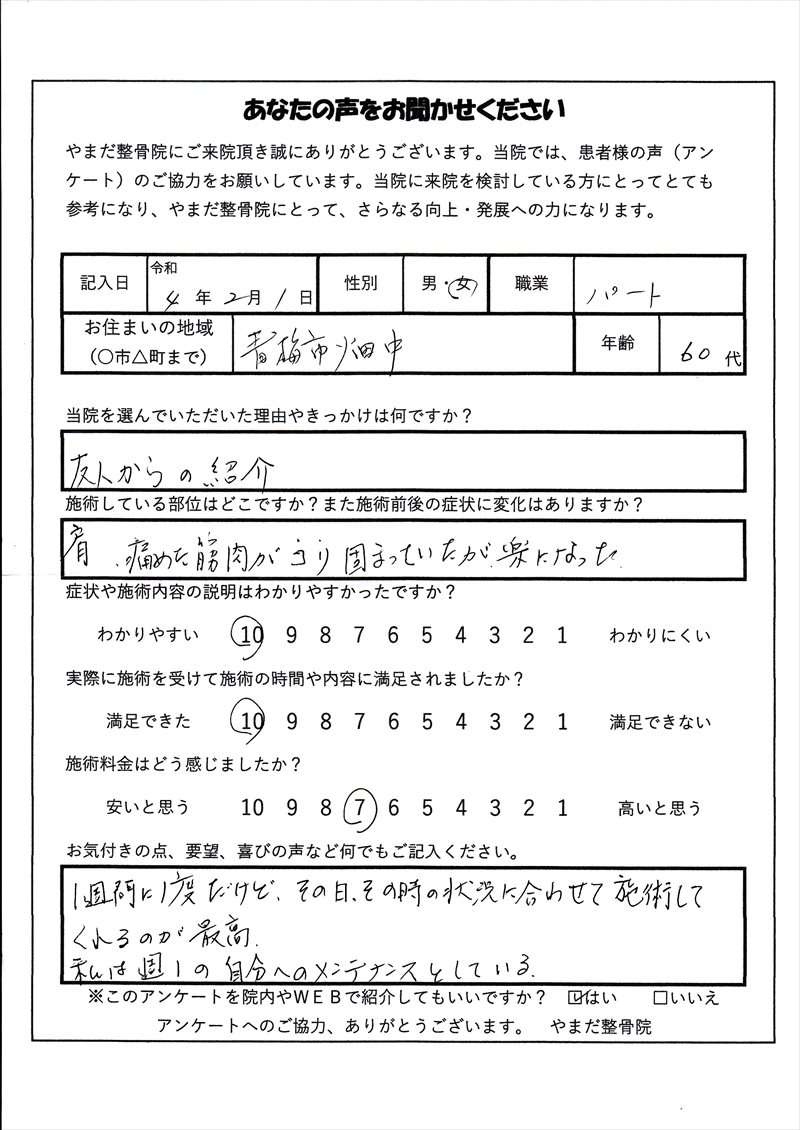 あなたの声をお聞かせください
やまだ整骨院にご来院頂き誠にありがとうございます。当院では、患者様の声（アン
ケート）のご協力をお願いしています。当院に来院を検討している方にとってとても
参考になり、やまだ整骨院にとって、さらなる向上・発展への力になります。
記入日 令和 4 年 2 月 1 日 性別 男・女 職業 パート
お住まいの地域 （〇市△町まで） 青梅市畑中 年齢 60 代
当院を選んでいただいた理由やきっかけは何ですか？
友人からの紹介
施術している部位はどこですか？また施術前後の症状に変化はありますか？
肩、痛めた筋肉が 固まっていたが楽になった。
症状や施術内容の説明はわかりやすかったですか？
わかりやすい 10 9 8 7 6 5 4 3 2 1 わかりにくい
実際に施術を受けて施術の時間や内容に満足されましたか？
満足できた 10 9 8 7 6 5 4 3 2 1 満足できない
施術料金はどう感じましたか？
安いと思う 10 9 8 7 6 5 4 3 2 1 高いと思う
お気付きの点、要望、喜びの声など何でもご記入ください。
1週間に1度だけど、その日、その時の状況に合わせて施術して
くれるのが最高。
私は週1の自分へのメンテナンスとしている。
※このアンケートを院内やＷＥＢで紹介してもいいですか？ ☑はい □いいえ
アンケートへのご協力、ありがとうございます。 やまだ整骨院